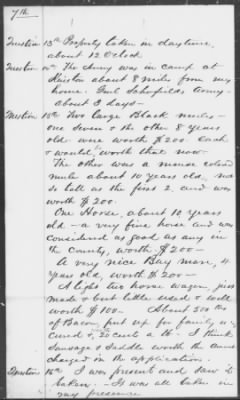 7th.
Question 13th Property taken in daytime,
about 12 O'clock
Question 14th The Army was in camp at
Kinston about 8 miles from my
home. Genl Schofields Army—
about 3 days—
Question 15th Two large Black mules—
one seven & the other 8 years
old were worth $200. Each
would worth that now.
The other was a mouse colored
mule about 10 years old, not
so tall as the first 2 and was
worth $200.
One Horse, about 10 years
old—a very fine horse and was
considered as good as any in
the County, worth $200—
A very nice Bay mare, 4
years old, worth $200—
A light two horse wagon, just
made & but little used & well
worth $100— About 500 lbs
of Bacon, put up for family,
cured & 20 cents a lb—I think
Sausage & Saddle worth the amt
charged in the application.
Question 16th I was present and saw it
taken—It was all taken in
my presence